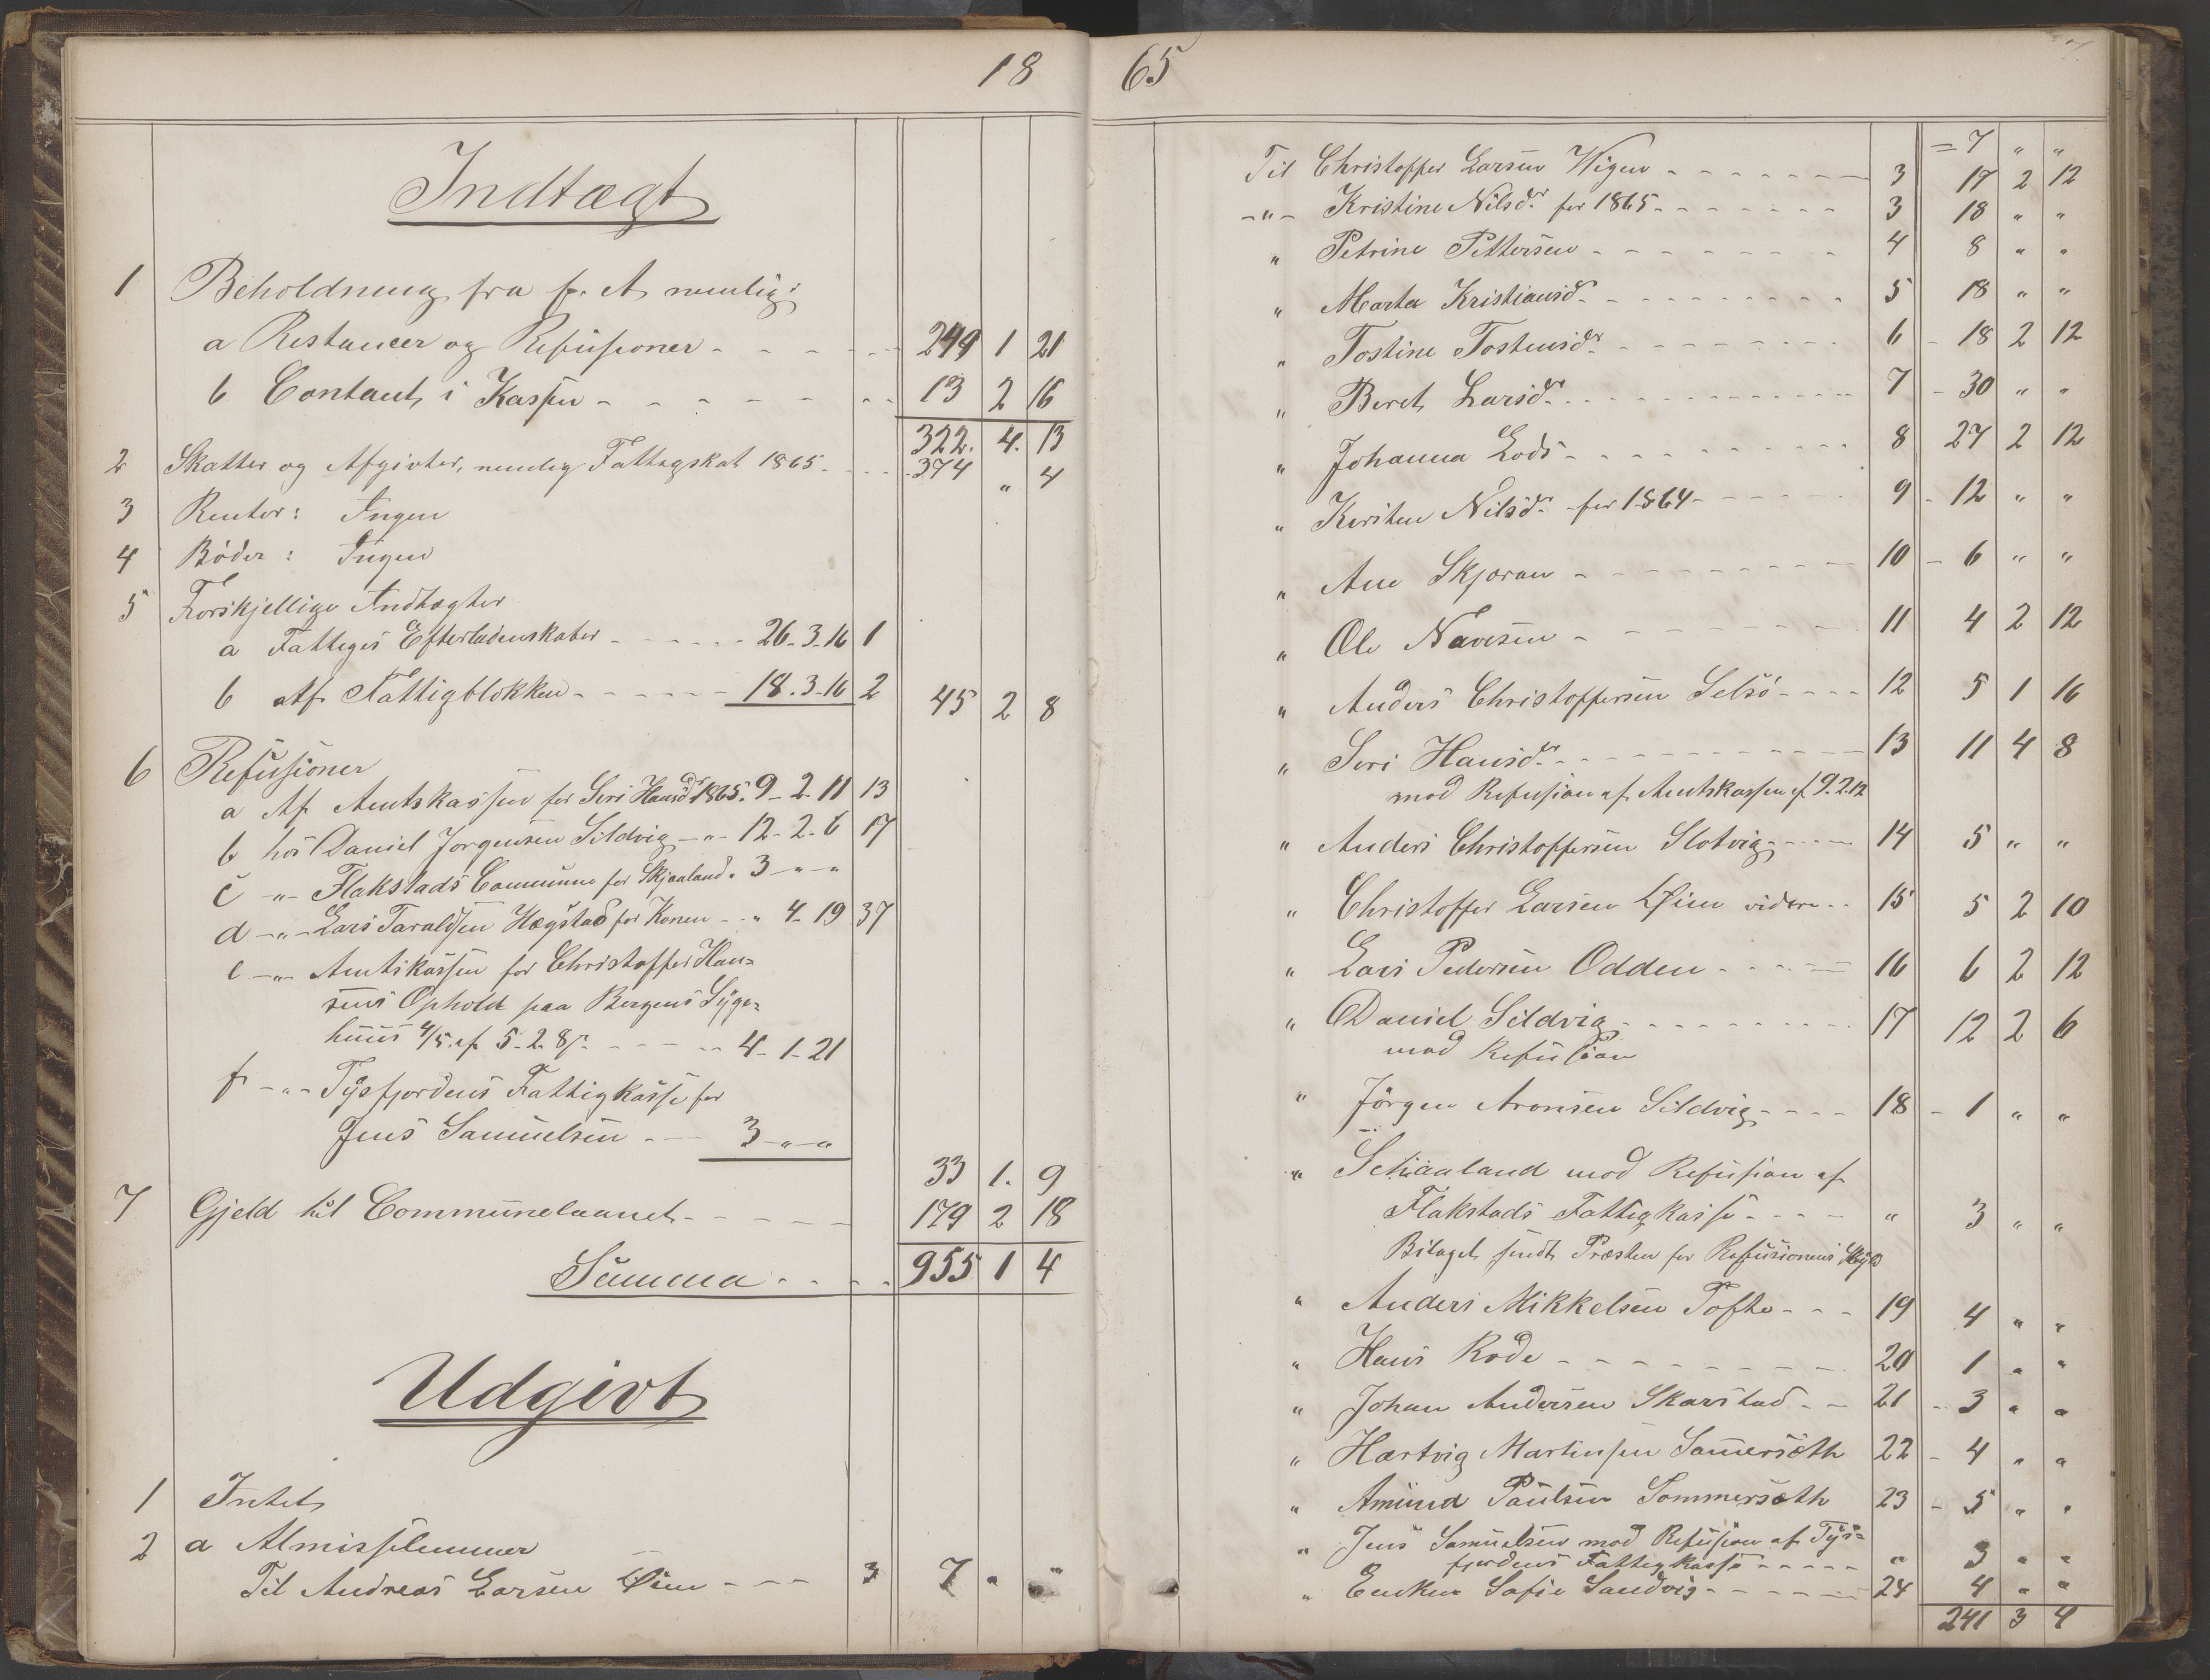 18 65
Indtægt
1 Beholdning fra f. A. nemlig:
a Restancer og Refusioner - - - - - 249 1 21
b Contant i Kassen - - - - - - - 13 2 16
322. 4. 13
2 Skatter og Afgivter, nemlig Fattigskat 1865. - - - 374 " 4
3 Renter: Ingen
4 Bøder: Ingen
5 Forskjellige Indtægter
a Fattiges Efterladenskaber - - - - - 26-3-16 1
b Af Fattigblokken - - - - - 18.3-16 2 45 2 8
6 Refusioner
a Af Amtskassen for Siri Hansdr 1865. 9-2-11 13
b hos Daniel Jørgensen Sildvig -"- 12-2-6 17
c -"- Flakstads Commune for Skjaaland. 3 -"-"
d -"- Lars Taraldsen Hægstad for Konen - - " 4-19 37
e -"- Amtskassen for Christoffer Han=
sens Ophold paa Bergens Syge=
huus 4/5. af 5-2-8 s. - - - - - 4-1-21
f -"- Tysfjordens Fattigkasse for
Jens Samuelsen - - - 3-"-"
33 1. 9
7 Gjeld til Communelaanet - - - - - 179 2 18
Summa - - - - 955 1 4
Udgivt
1 Intet
2 a Almisselemmer
Til Andreas Larsen Øien - - - 3 7 " "
= 7 " "
Til Christoffer Larsen Wigen - - - - - - 3 17 2 12
-"- Kristine Nilsdr. for 1865 - - - - - - 3 18 " "
" Petrine Pettersen - - - - - - - 4 8 " "
" Marta Kristiansdr. - - - - - - - 5 18 " "
" Tostine Tostensdr. - - - - - - - 6 - 18 2 12
" Beret Larsdr. - - - - - - - 7 - 30 " "
" Johanna Lods - - - - - - - 8 27 2 12
" Kirsten Nilsdr. for 1864 - - - - - 9 - 12 " "
" Ane Skjoran - - - - - - - 10 - 6 " "
" Ole Navesen - - - - - - - 11 4 2 12
" Anders Christoffersen Selsø - - - - 12 5 1 16
" Siri Hansdr. - - - - - - - 13 11 4 8
mod Refusion af Amtskassen af 9.2.12
" Anders Christoffersen Slotvig - - - - 14 5 " "
" Christoffer Larsen Øien videre - - 15 5 2 10
" Lars Pedersen Odden - - - - - 16 6 2 12
" Daniel Sildvig - - - - - - - 17 12 2 6
mod Refusion
" Jörgen Aronsen Sildvig - - - - 18 - 1 " "
" Schaaland mod Refusion af
Flakstads Fattigkasse - - - - " 3 " "
Bilaget sendt Præsten for Refusionens Skyld
" Anders Mikkelsen Tofte - - - 19 4 " "
" Hans Rode - - - - - - - - 20 1 " "
" Johan Andersen Skarstad - - 21 - 3 " "
" Hartvig Martinsen Sommersæth 22 - 4 " "
" Amund Paulsen Sommersæth 23 - 5 " "
" Jens Samuelsen mod Refusion af Tys=
fjordens Fattigkasse - - - - - " 3 " "
" Enken Sofie Sandvig - - - - - - 24 4 " "
241 3 4